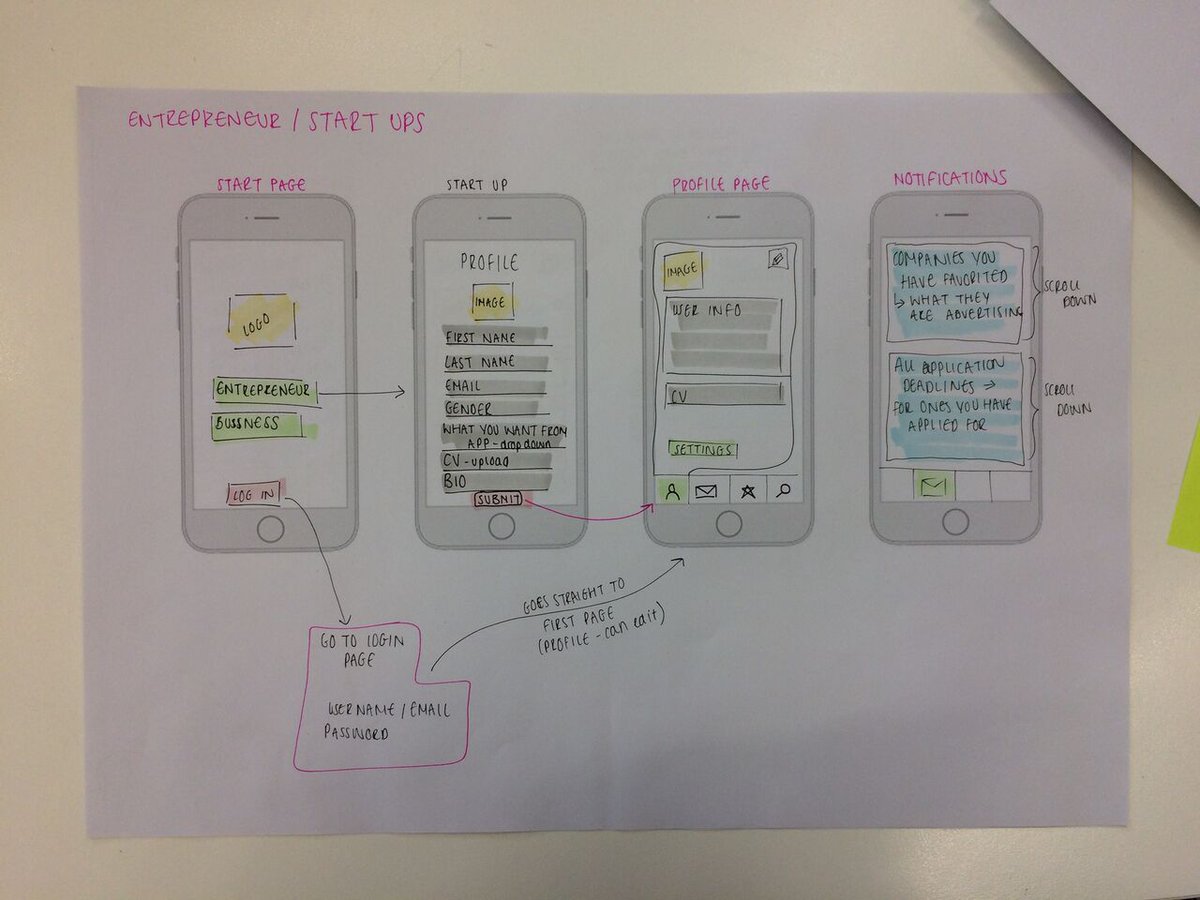 ENTREPRENEUR / START UPS
START PAGE
LOGO
ENTREPRENEUR
BUSSNESS
LOG IN
START UP
PROFILE
IMAGE
FIRST NAME
LAST NAME
EMAIL
GENDER
WHAT YOU WANT FROM
APP - drop down
CV - upload
BIO
SUBMIT
PROFILE PAGE
IMAGE
USER INFO
CV
SETTINGS
NOTIFICATIONS
COMPANIES YOU
HAVE FAVORITED
↳ WHAT THEY
ARE ADVERTISING
SCROLL
DOWN
All APPLICATION
DEADLINES →
FOR ONES YOU HAVE
APPLIED FOR
SCROLL
DOWN
GO TO LOGIN
PAGE
USERNAME / EMAIL
PASSWORD
GOES STRAIGHT TO
FIRST PAGE
(PROFILE - can edit)